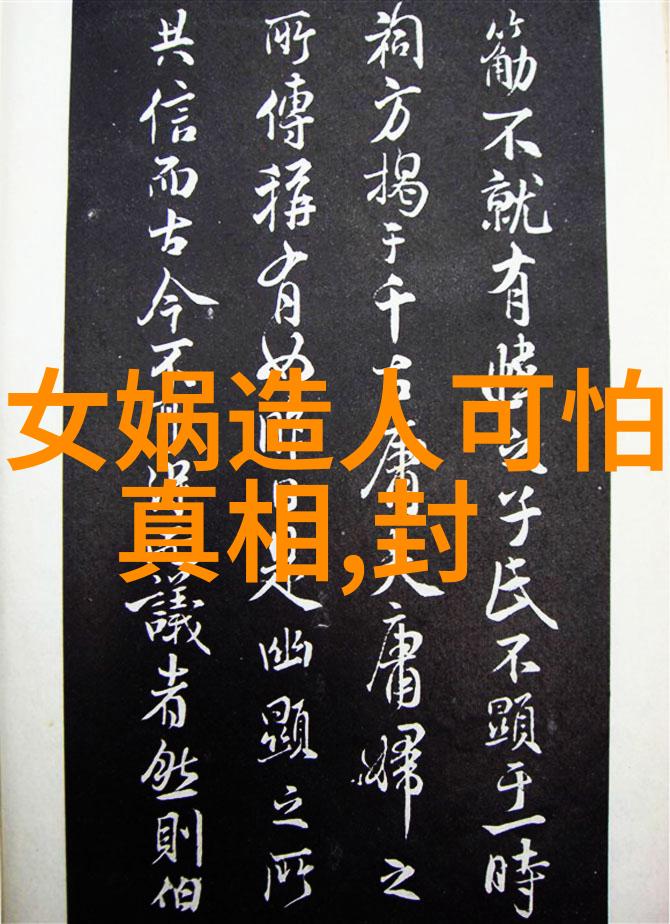 女娲造人可怕
真相,封
不就有之子氏不顯于一時
祠方揭于千古庸夫庸婦之
所傳稱有如昨日是幽顯之所
共信而古今不議者然則伯